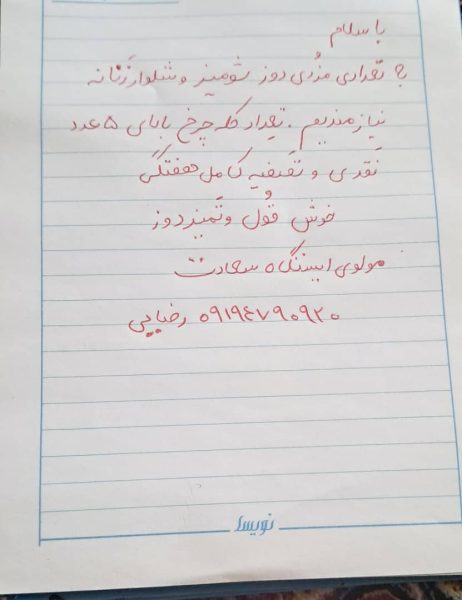 با سلام
به تعدادی مزدی دوز شومیز و شلوار زنانه
نیازمندیم. تعداد کله چرخ بالای ۵ عدد
نقدی و تصفیه کامل هفتگی
خوش قول و تمیز دوز
مولوی ایستگاه سعادت
۰۹۱۹۴۷۹۰۹۲۰ رضایی
نویسا